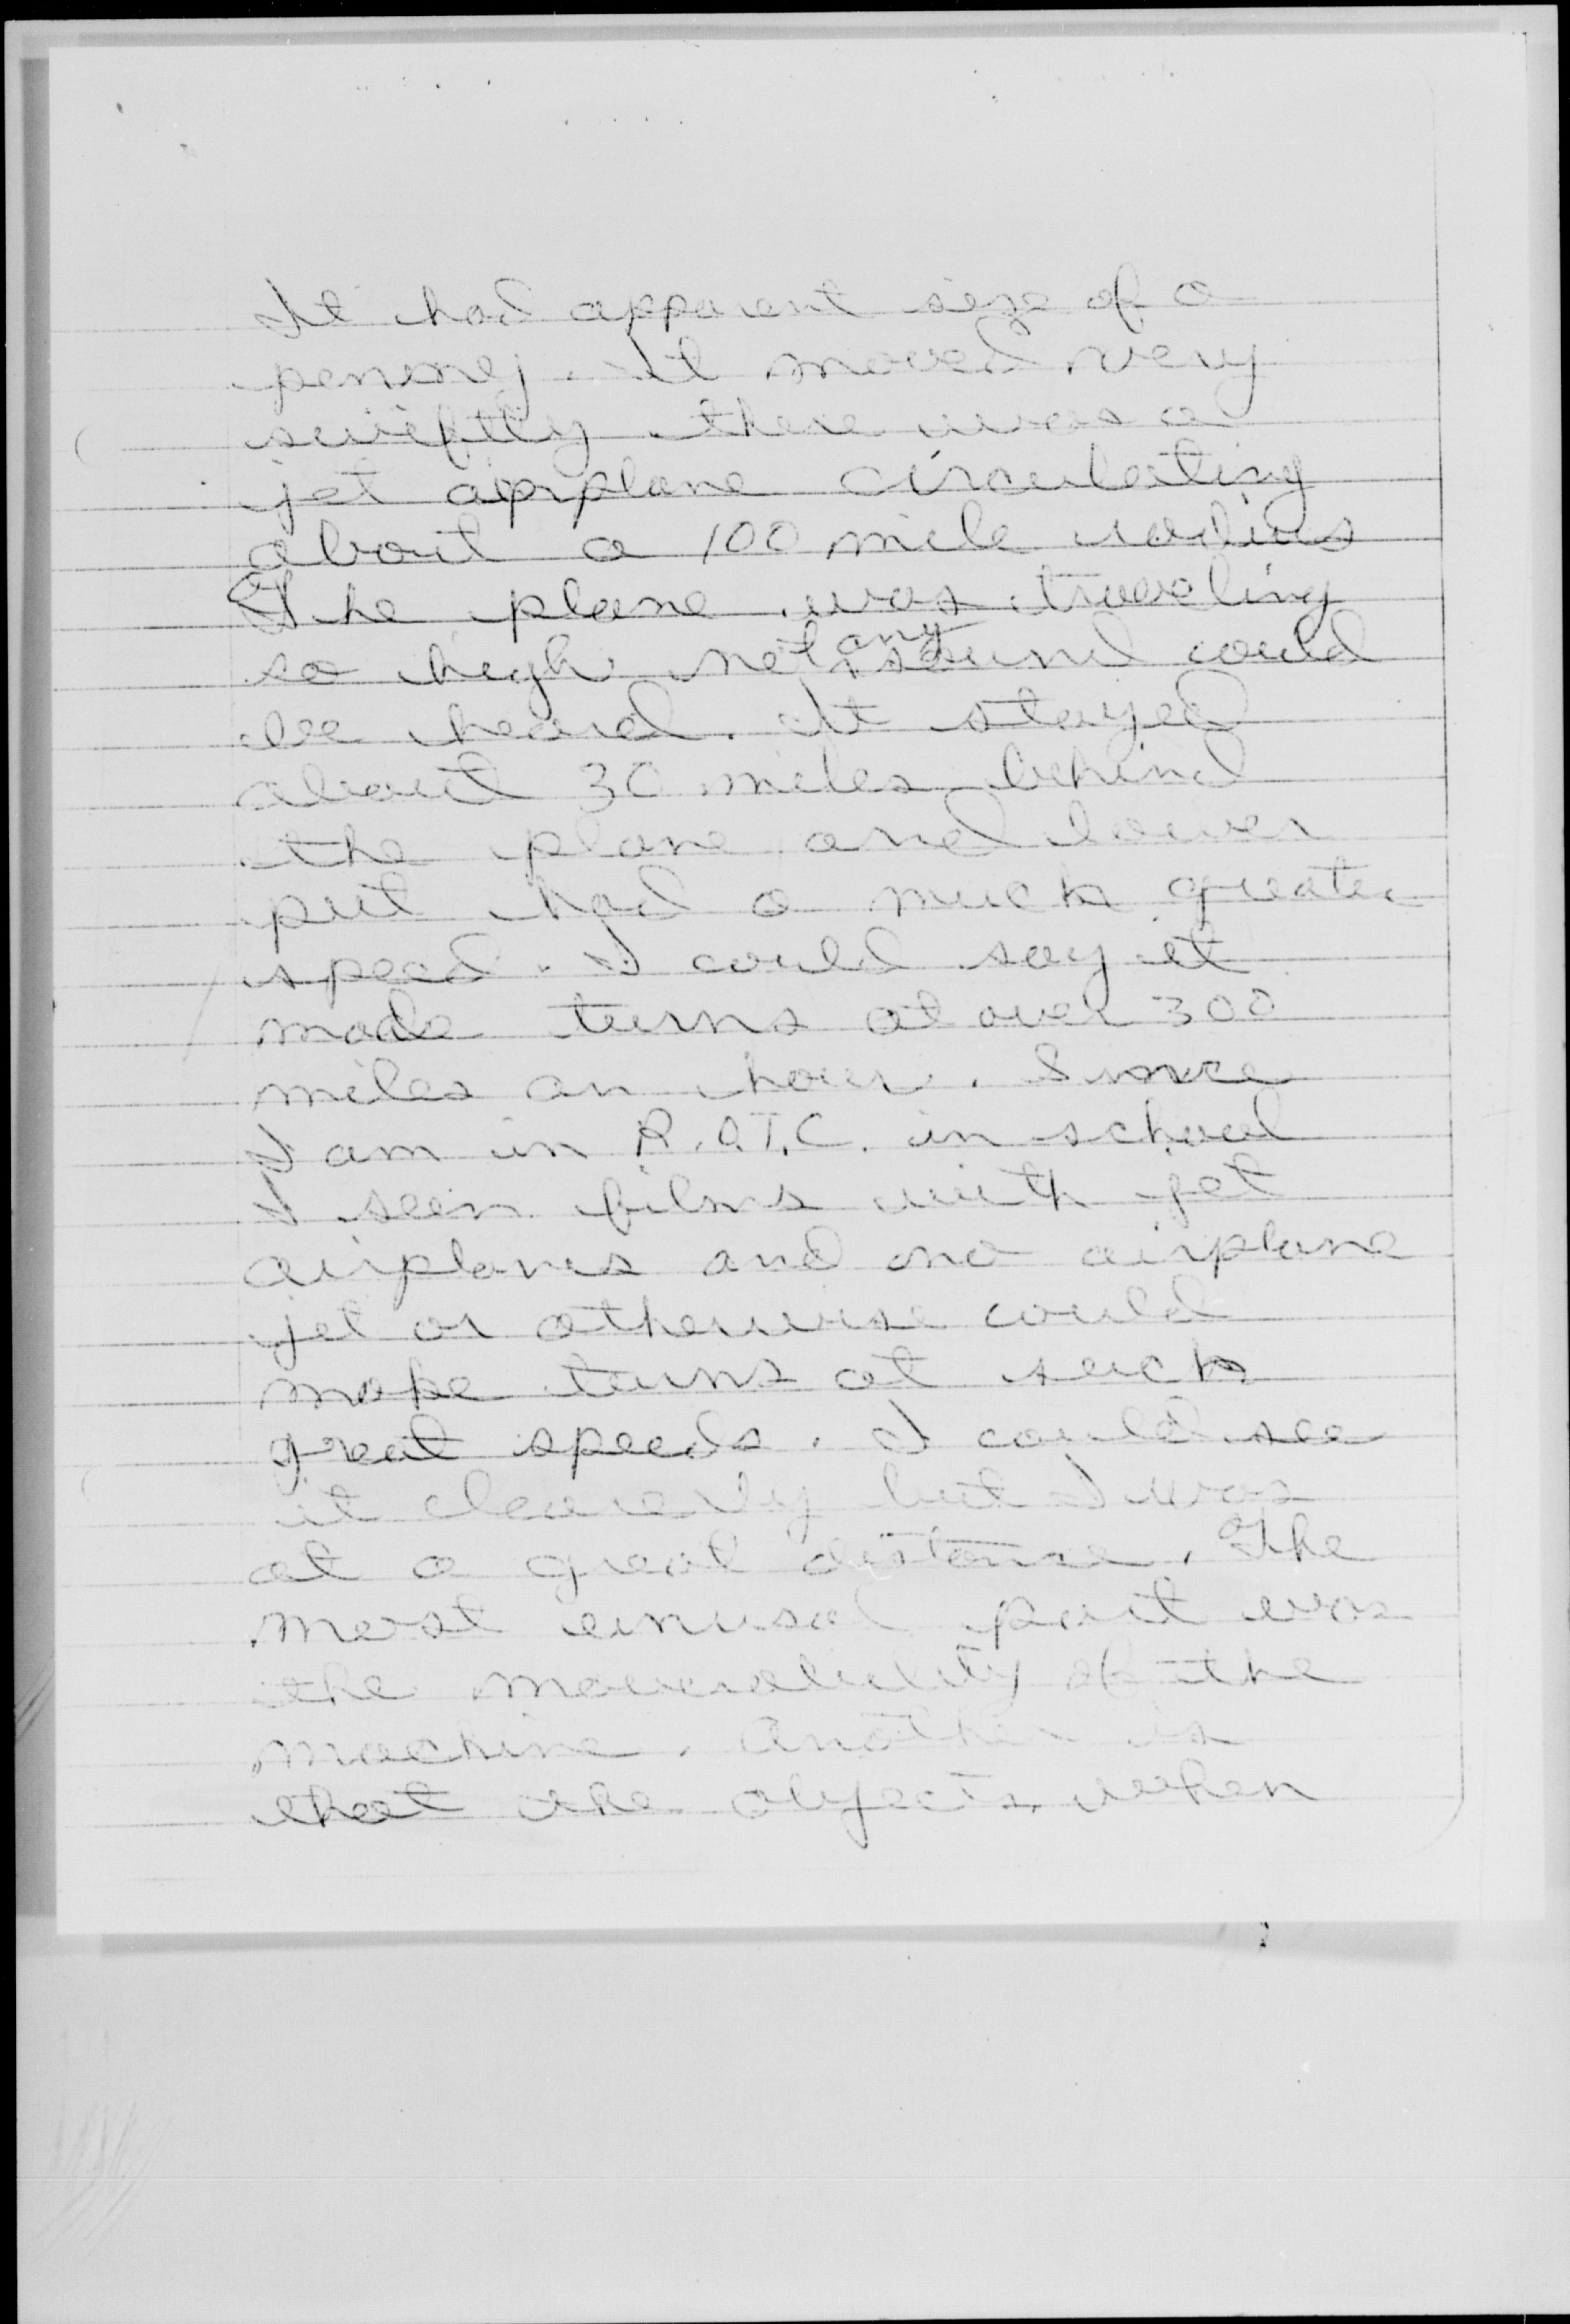 It had apparent size of a
penney. It moved very
swiftly there was a
jet airplane circulating
about a 100 mile radius
The plane was traveling
so high not any sound could
be heard. It stayed
about 30 miles behind
the plane and lower
put had a much greater
speed. I could say it
made turns at over 300
miles an hour. Since
I am in R.O.T.C. in school
I seen films with jet
airplanes and no airplane
jet or otherwise could
make turns at such
great speeds. I could see
it clearly but I was
at a great distance. The
most unusal part was
the of the
machine. Another is
that the objects when